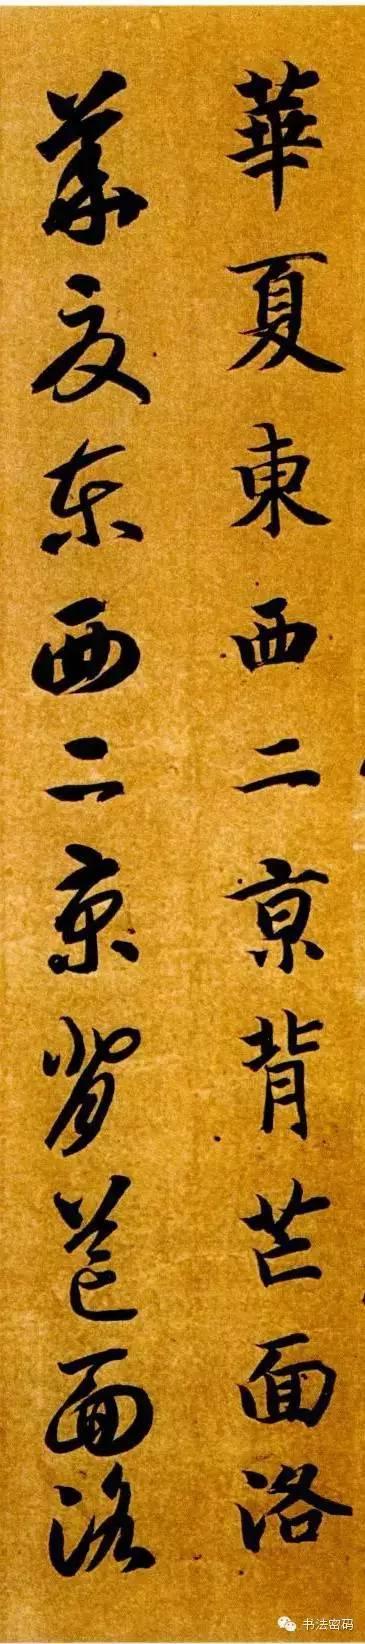 華夏東西二京背芒面洛
華夏東西二京背芒面洛
书法密码